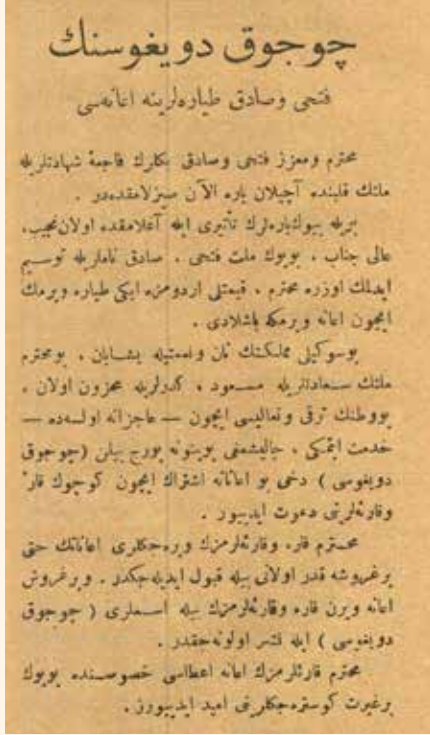 چوجوق دويغوسنك
فتحى وصادق طياره‌لرينه اعانه‌سى
محترم ومعزز فتحى وصادق بكلرك فاجعهٔ شهادتلريله
ملتك قلبنده آچيلان ياره الآن سيزلامقده‌در .
بويله بيوك ياره‌لرك تأثيرى ايله آغلامقده اولان نجيب،
عالى جناب ، بويوك ملت فتحى ، صادق ناملريله توسيم
ايدلمك اوزره محترم ، قيمتلى اردومزه ايكى طياره ويرمك
ايچون اعانه ويرمكه باشلادى .
بوسوكيلى مملكتك نان ونعمتيله يشايان ، بومحترم
ملتك سعادتلريله مسعود ، كدرلريله محزون اولان ،
بووطنك ترقى وتعاليسى ايچون — عاجزانه اولسه‌ده —
خدمت ايتمكى ، چاليشمغى بوينونه بورج بيلن (چوجوق
دويغوسى ) دخى بو اعاناته اشتراك ايچون كوچوك قارئ
وقارئه‌لرينى دعوت ايدييور .
محترم قارء وقارئه‌لرمزك ويره‌جكلرى اعاناتك حتى
برغروشه قدر اولانى بيله قبول ايديله‌جكدر . وبرغروش
اعانه ويرن قارء وقارئه‌لرمزك بيله اسملرى ( چوجوق
دويغوسى ) ايله نشر اولونه‌جقدر .
محترم قارئلرمزك اعانه اعطاسى خصوصنده بويوك
برغيرت كوستره‌جكلرينى اميد ايدييورز .